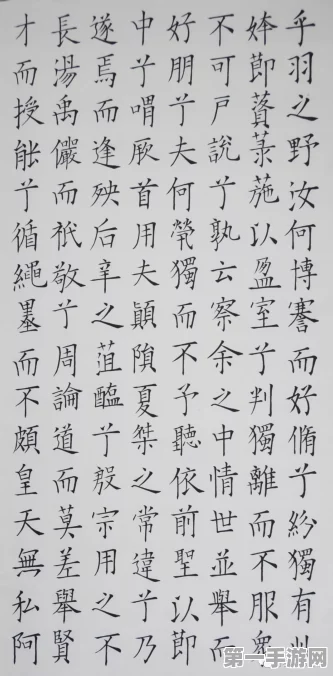 乎羽之野汝何博謇而好脩兮紛獨有
姱節薋菉葹以盈室兮判獨離而不服眾
不可戶說兮孰云察余之中情世並舉而
好朋兮夫何煢獨而不予聽依前聖以節
中兮喟厥首用夫顛隕夏桀之常違兮乃
遂焉而逢殃后辛之菹醢兮殷宗用之不
長湯禹儼而祗敬兮周論道而莫差舉賢
才而授能兮循繩墨而不頗皇天無私阿
第一手游网